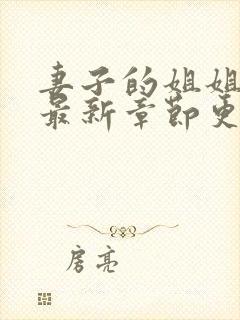 妻子的姐姐
最新章节更
房亮